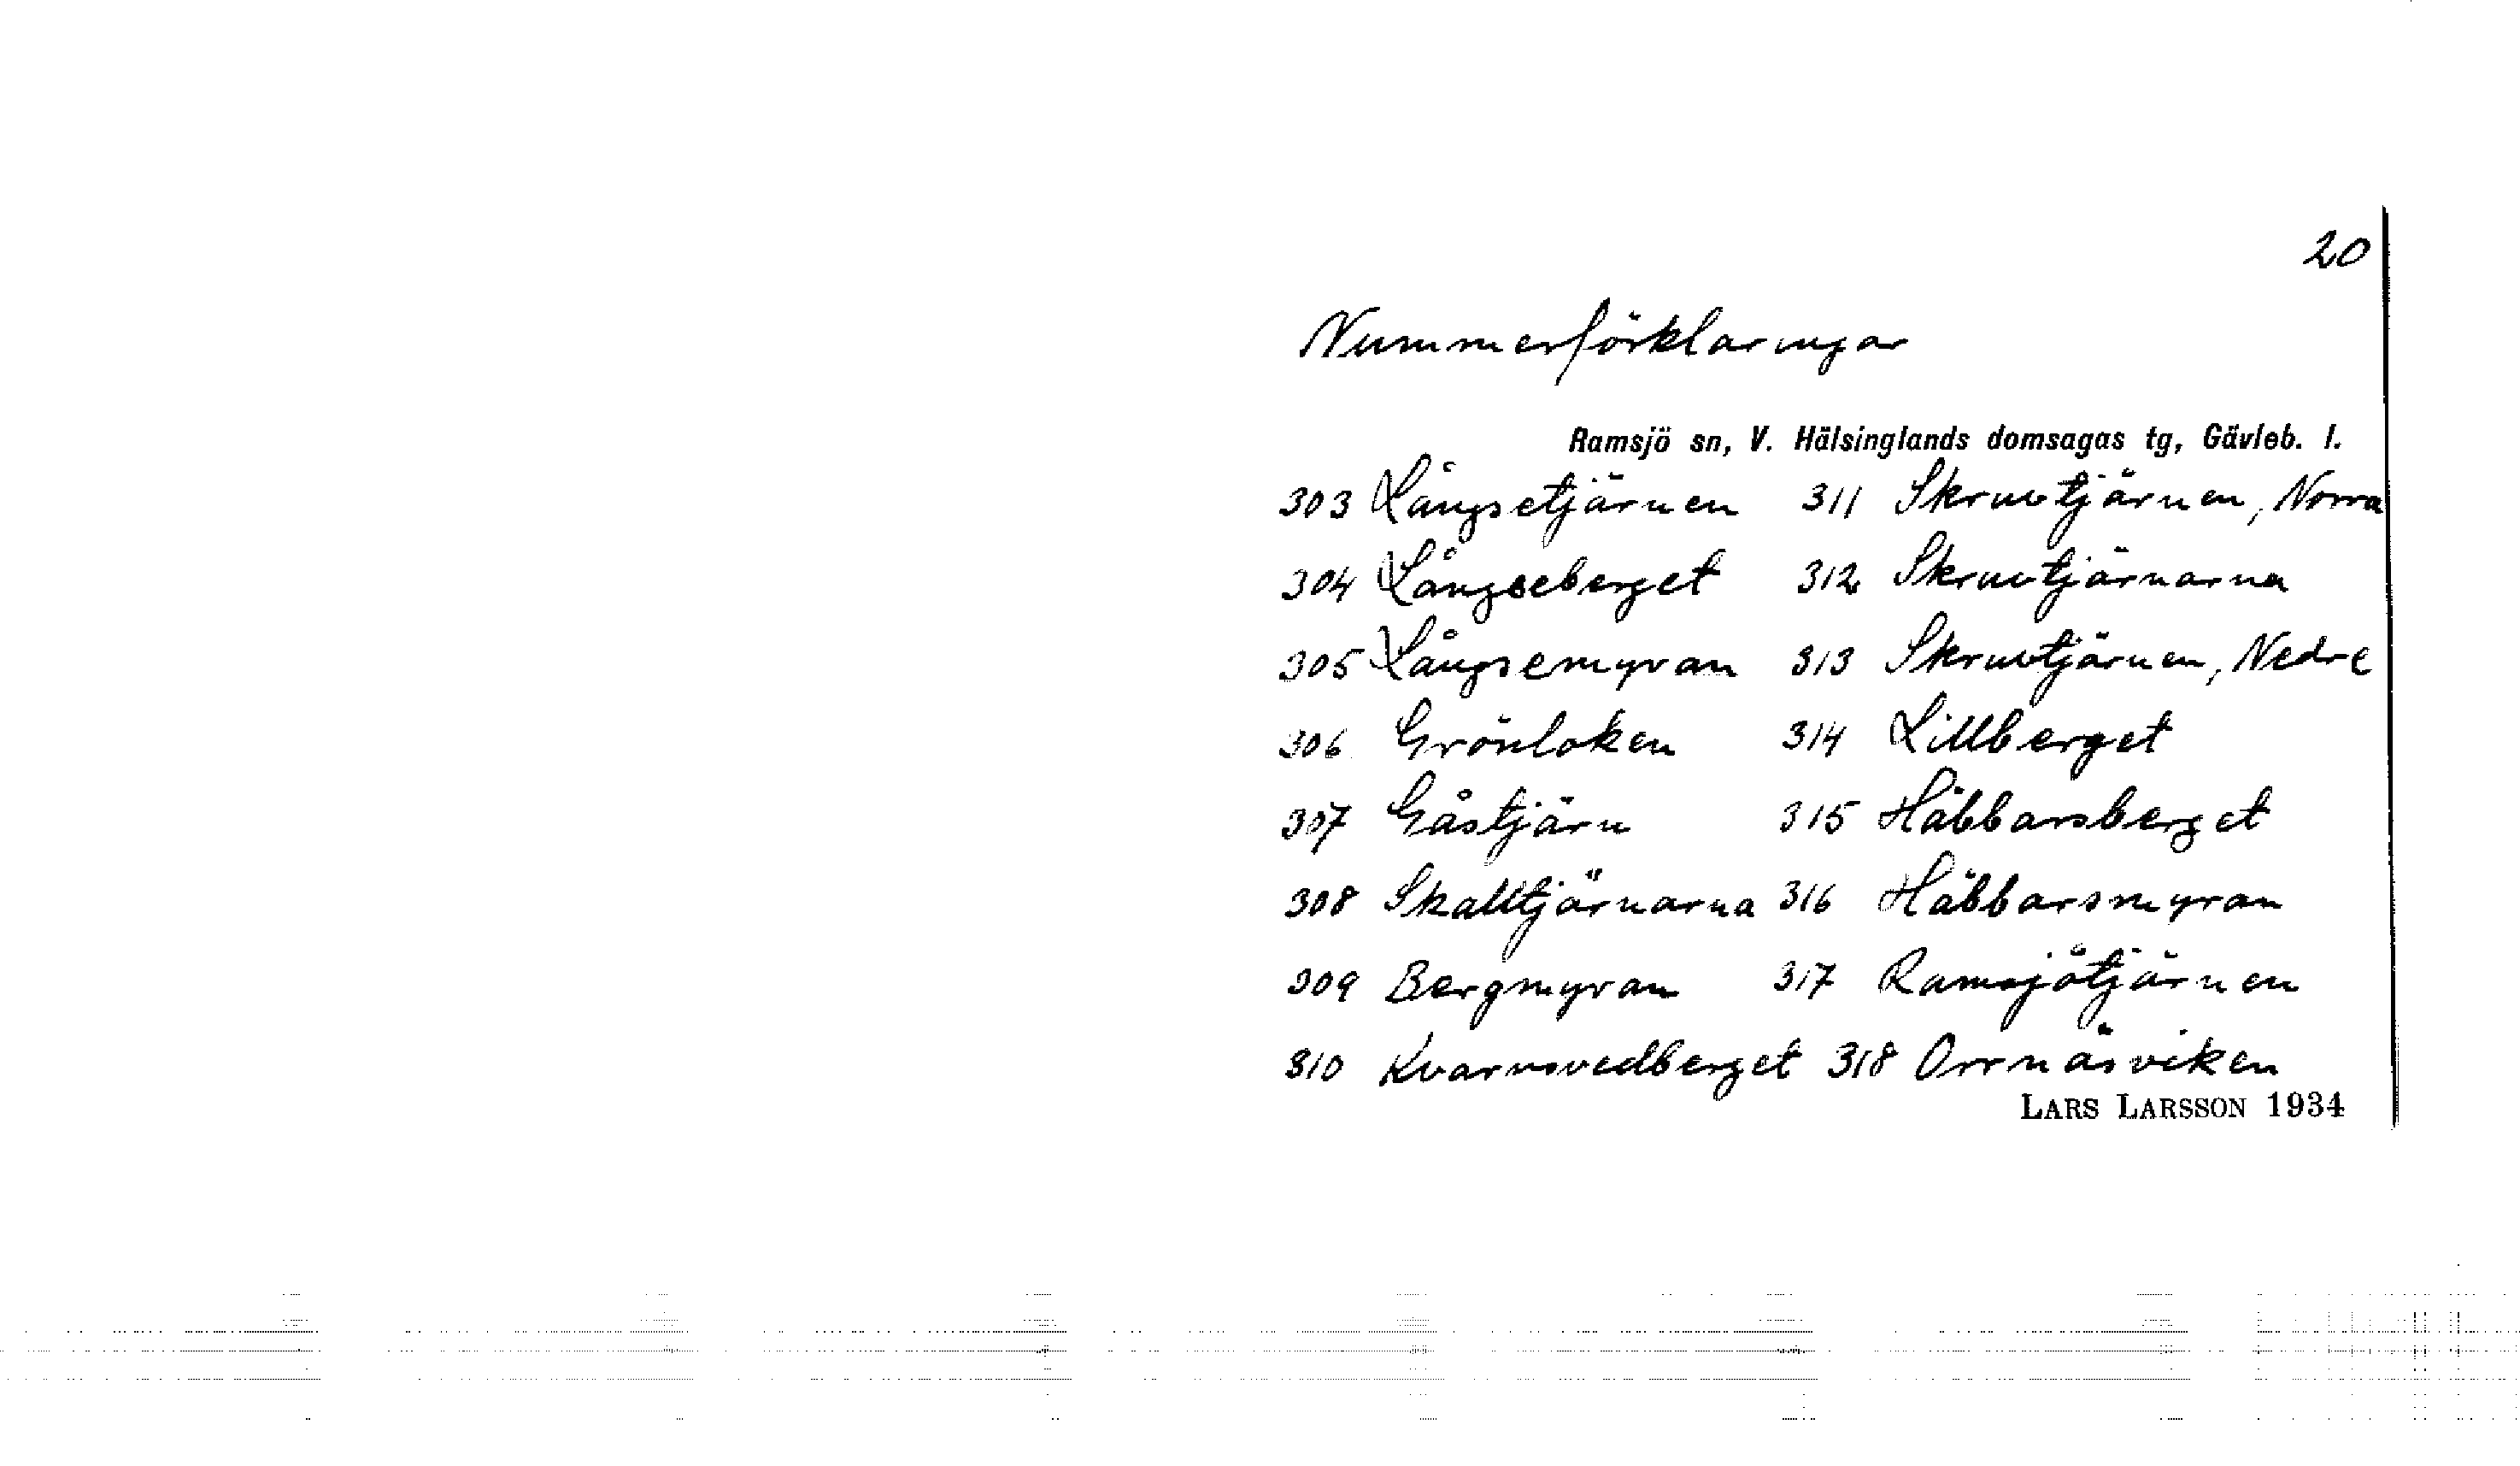 20
Nummerförklaringar
Ramsjö sn, V. Hälsinglands domsagas tg, Gävleb. l.
303 Långsetjärnen 311 Skruvtjärnen, Norra
304 Långseberget 312 Skruvtjärnarna
305 Långsemyran 313 Skruvtjärnen, Nedre
306 Grönloken 314 Lillberget
307 Gåstjärn 315 Häbbarsberget
308 Skalltjärnarna 316 Häbbarsmyran
309 Bergmyran 317 Ramsjötjärnen
310 Kvarnsvedberget 318 Orrnäsviken
LARS LARSSON 1934